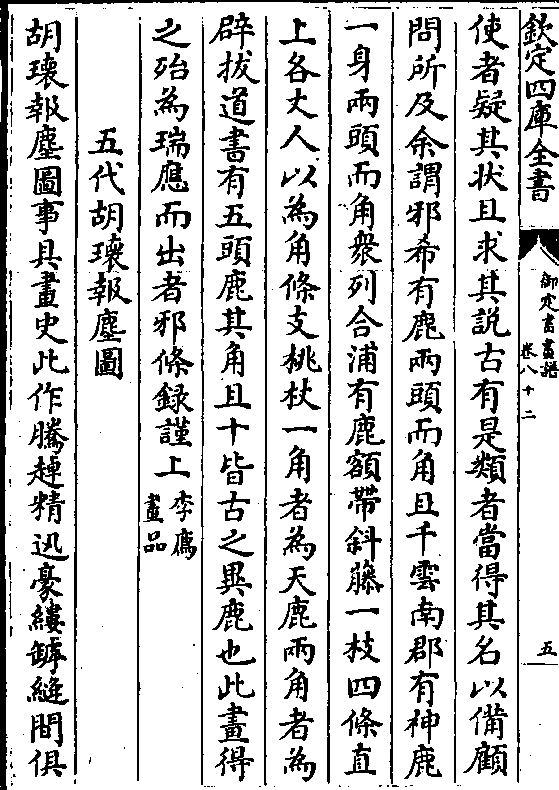 欽定四庫全書
御定書畫譜
卷八十二
五
使者疑其状且求其説古有是類者當得其名以備顧
問所及余謂邪希有鹿兩頭而角且千雲南郡有神鹿
一身兩頭而角衆列合浦有鹿額帶斜藤一枝四條直
上各丈人以為角條支桃杖一角者為天鹿兩角者為
辟拔道書有五頭鹿其角且十皆古之異鹿也此畫得
之殆為瑞應而出者邪條録謹上李廌
畫品
五代胡瓌報塵圖
胡瓌報塵圖事具畫史此作騰趠精迅豪縷罅縫間俱